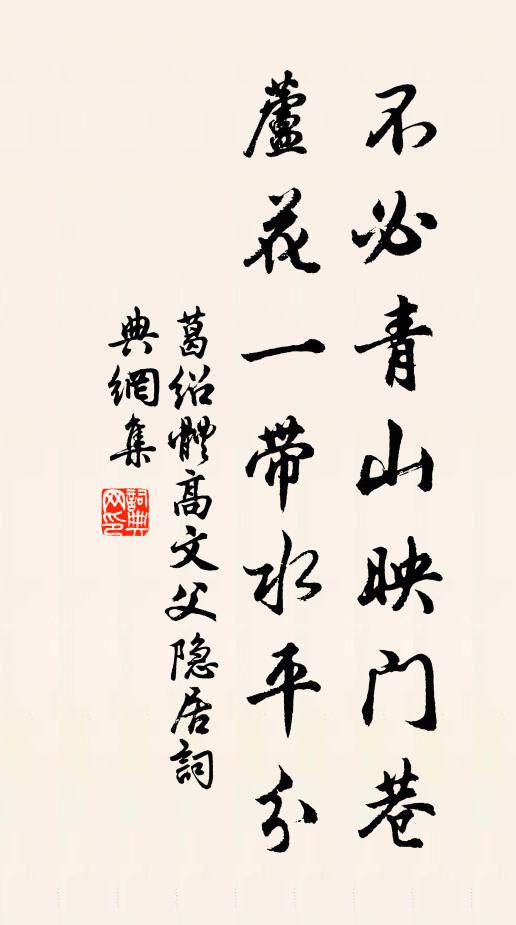 不必青山映門巷
蘆花一帶水平分
葛紹體高文父隱居詞
典網集
詞典
网印